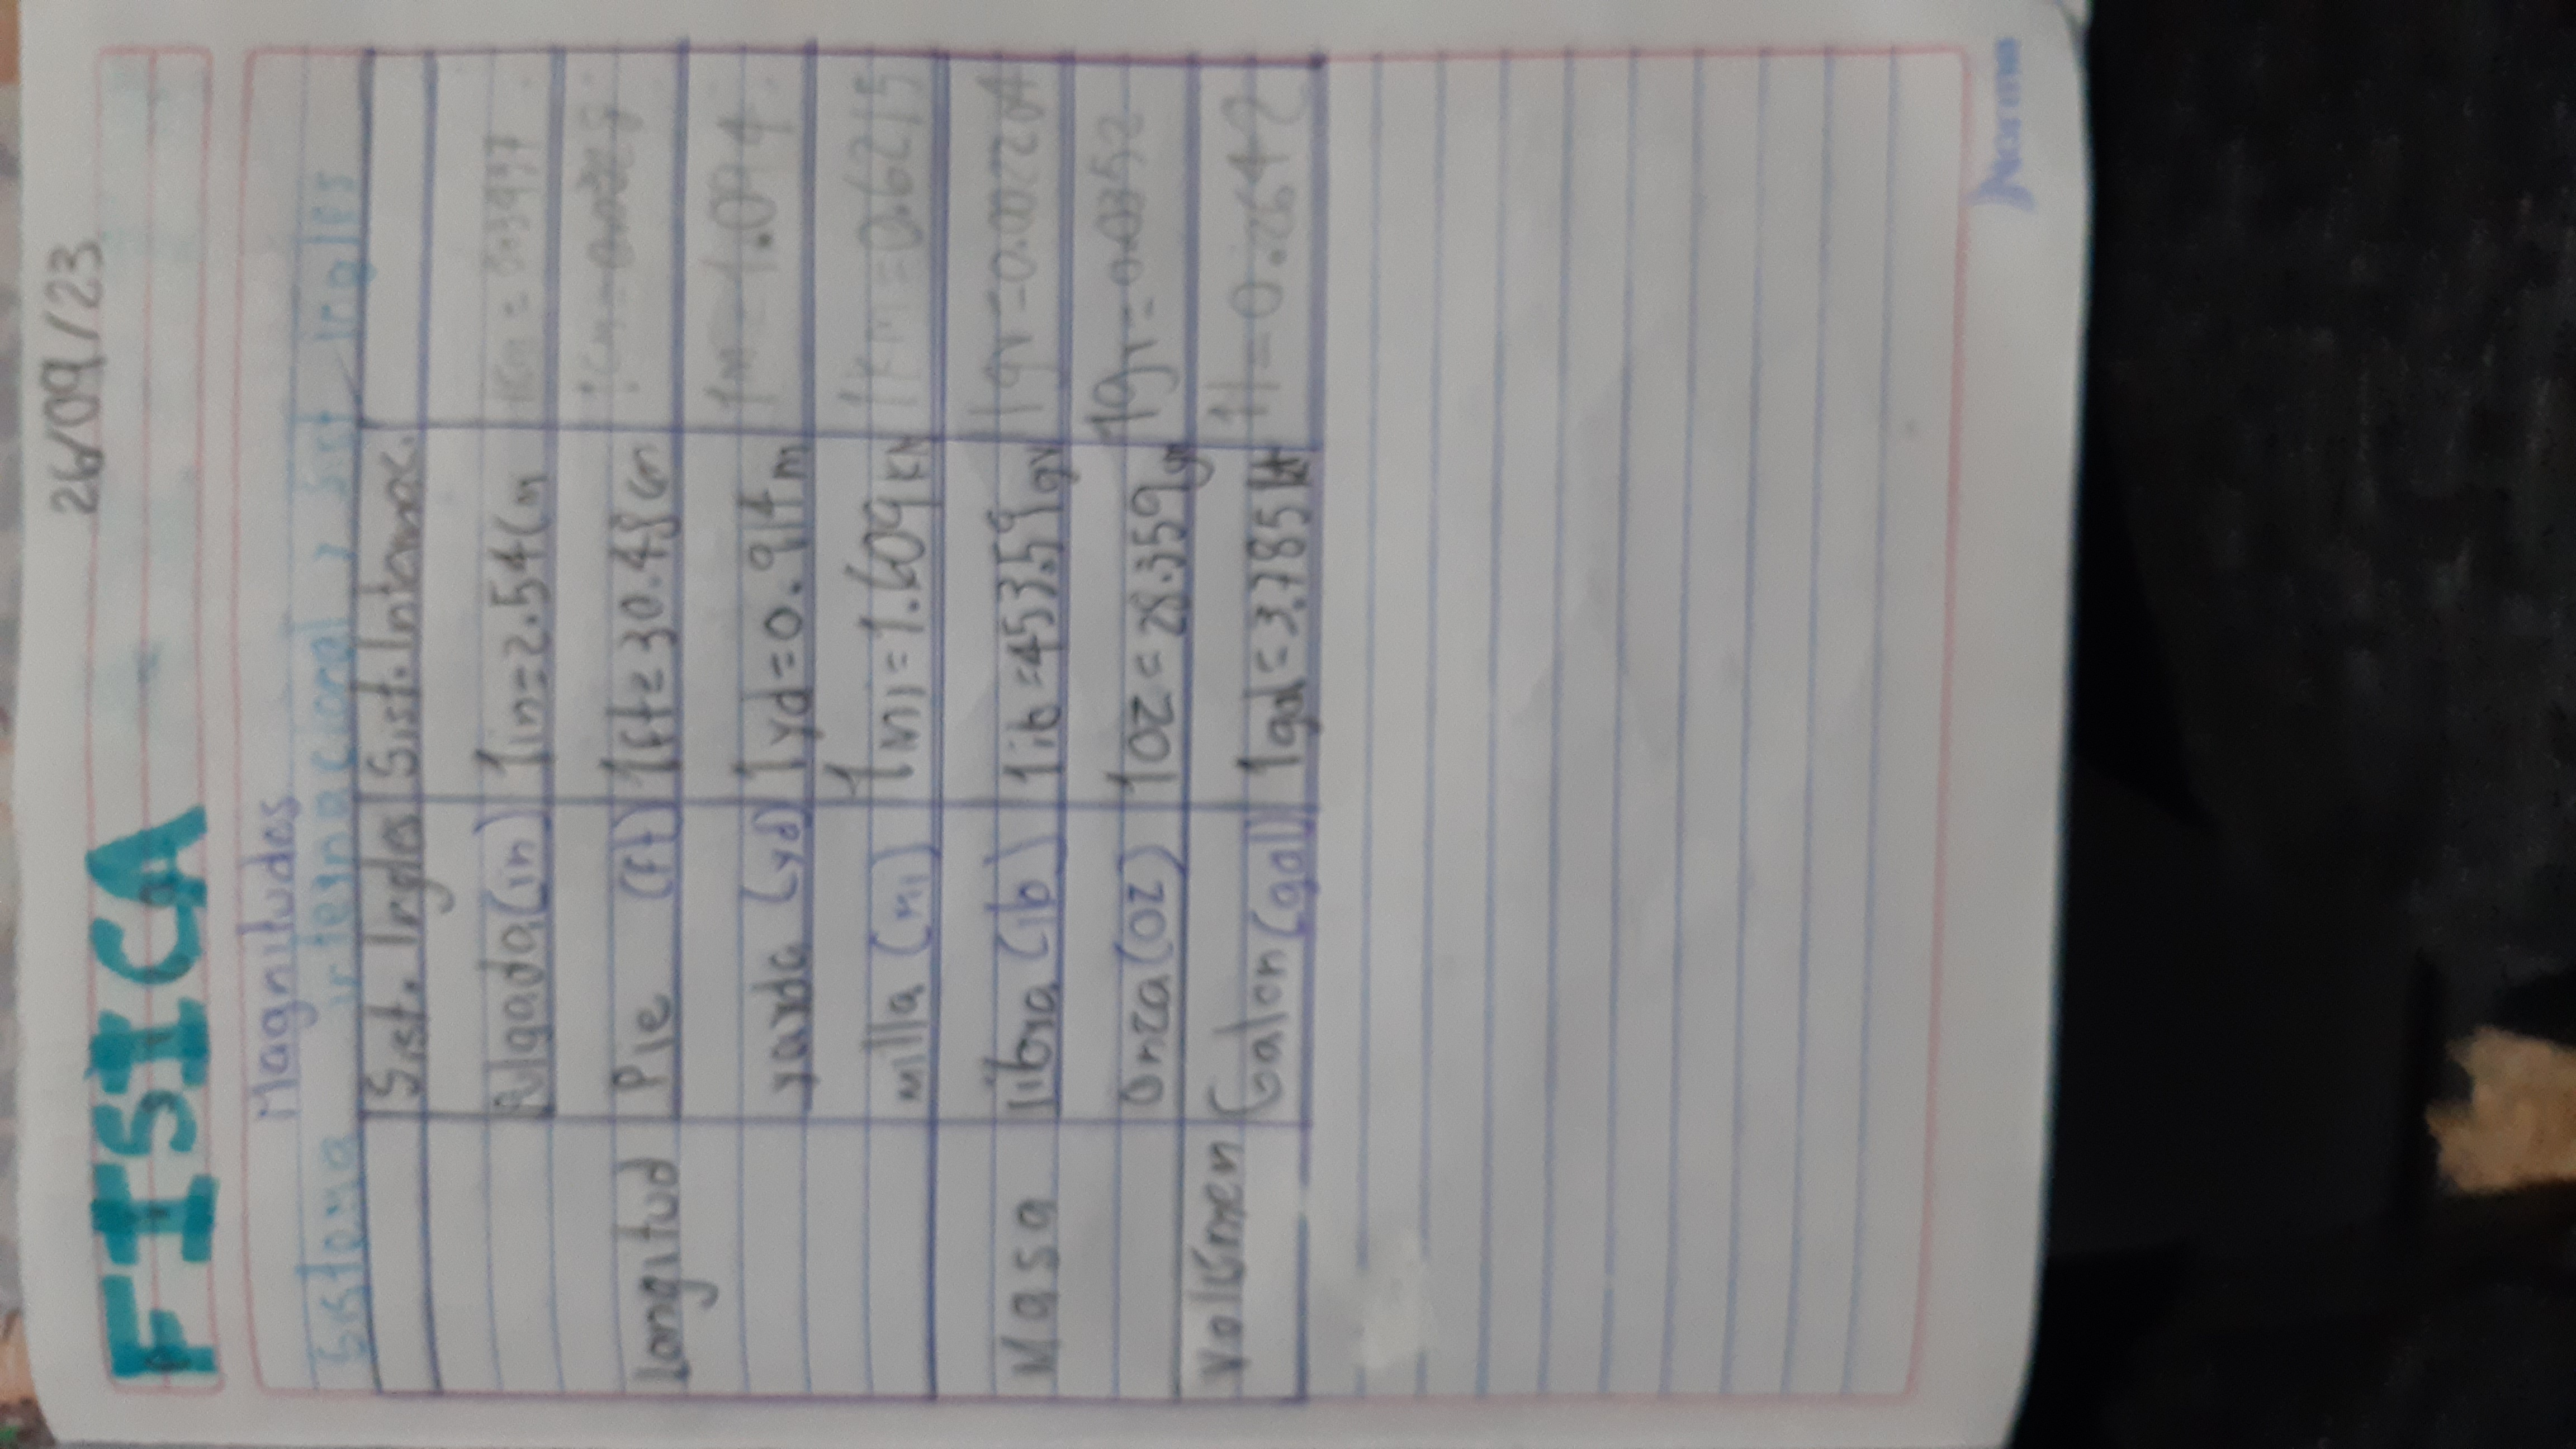 26/09/23
FISICA
Magnitudes
Sistema internacional y Sist Ingles
Sist. Ingles Sist. Internac.
Pulgada (in) 1in=2.54Cm
Longitud Pie (ft) 1ft=30.48cm
yarda (yd) 1yd=0.914m 1m=1.094
milla (mi) 1mi=1.609KM 1KM=0.6215
Masa libra (lb) 1lb=453.59gr 1gr=0.002204
Onza (oz) 1oz=28.359gr 1gr=0.0352
Volumen Galon (gal) 1gal=3.785lt 1l=0.2642
Norma